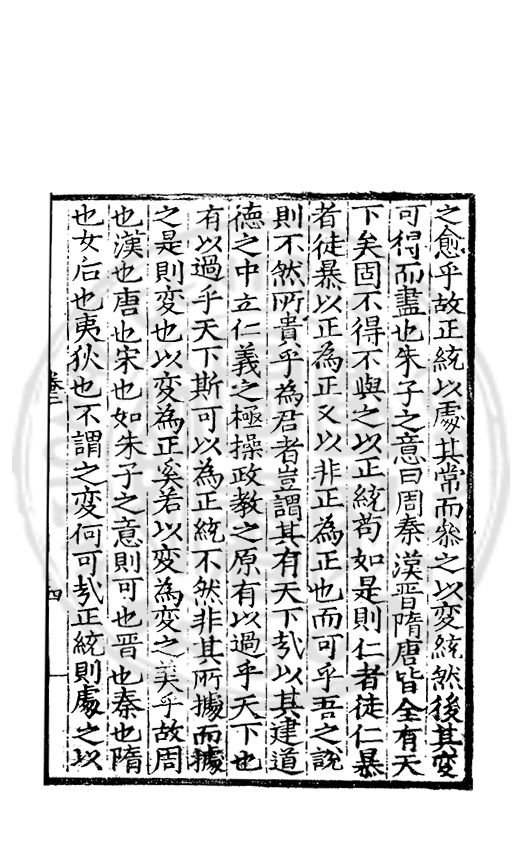 之愈乎故正統以處其常而叅之以変統然後其変
可得而盡也朱子之意曰周秦漢晋隋唐皆全有天
下矣固不得不與之以正統苟如是則仁者徒仁暴
者徒暴以正為正又以非正為正也而可乎吾之說
則不然所貴乎為君者豈謂其有天下㢤以其建道
德之中立仁義之極操政教之原有以過乎天下也
有以過乎天下斯可以為正統不然非其所據而據
之是則変也以変為正奚若以変為変之美乎故周
也漢也唐也宋也如朱子之意則可也晋也秦也隋
也女后也夷狄也不謂之変何可㢤正統則處之以
卷三
四